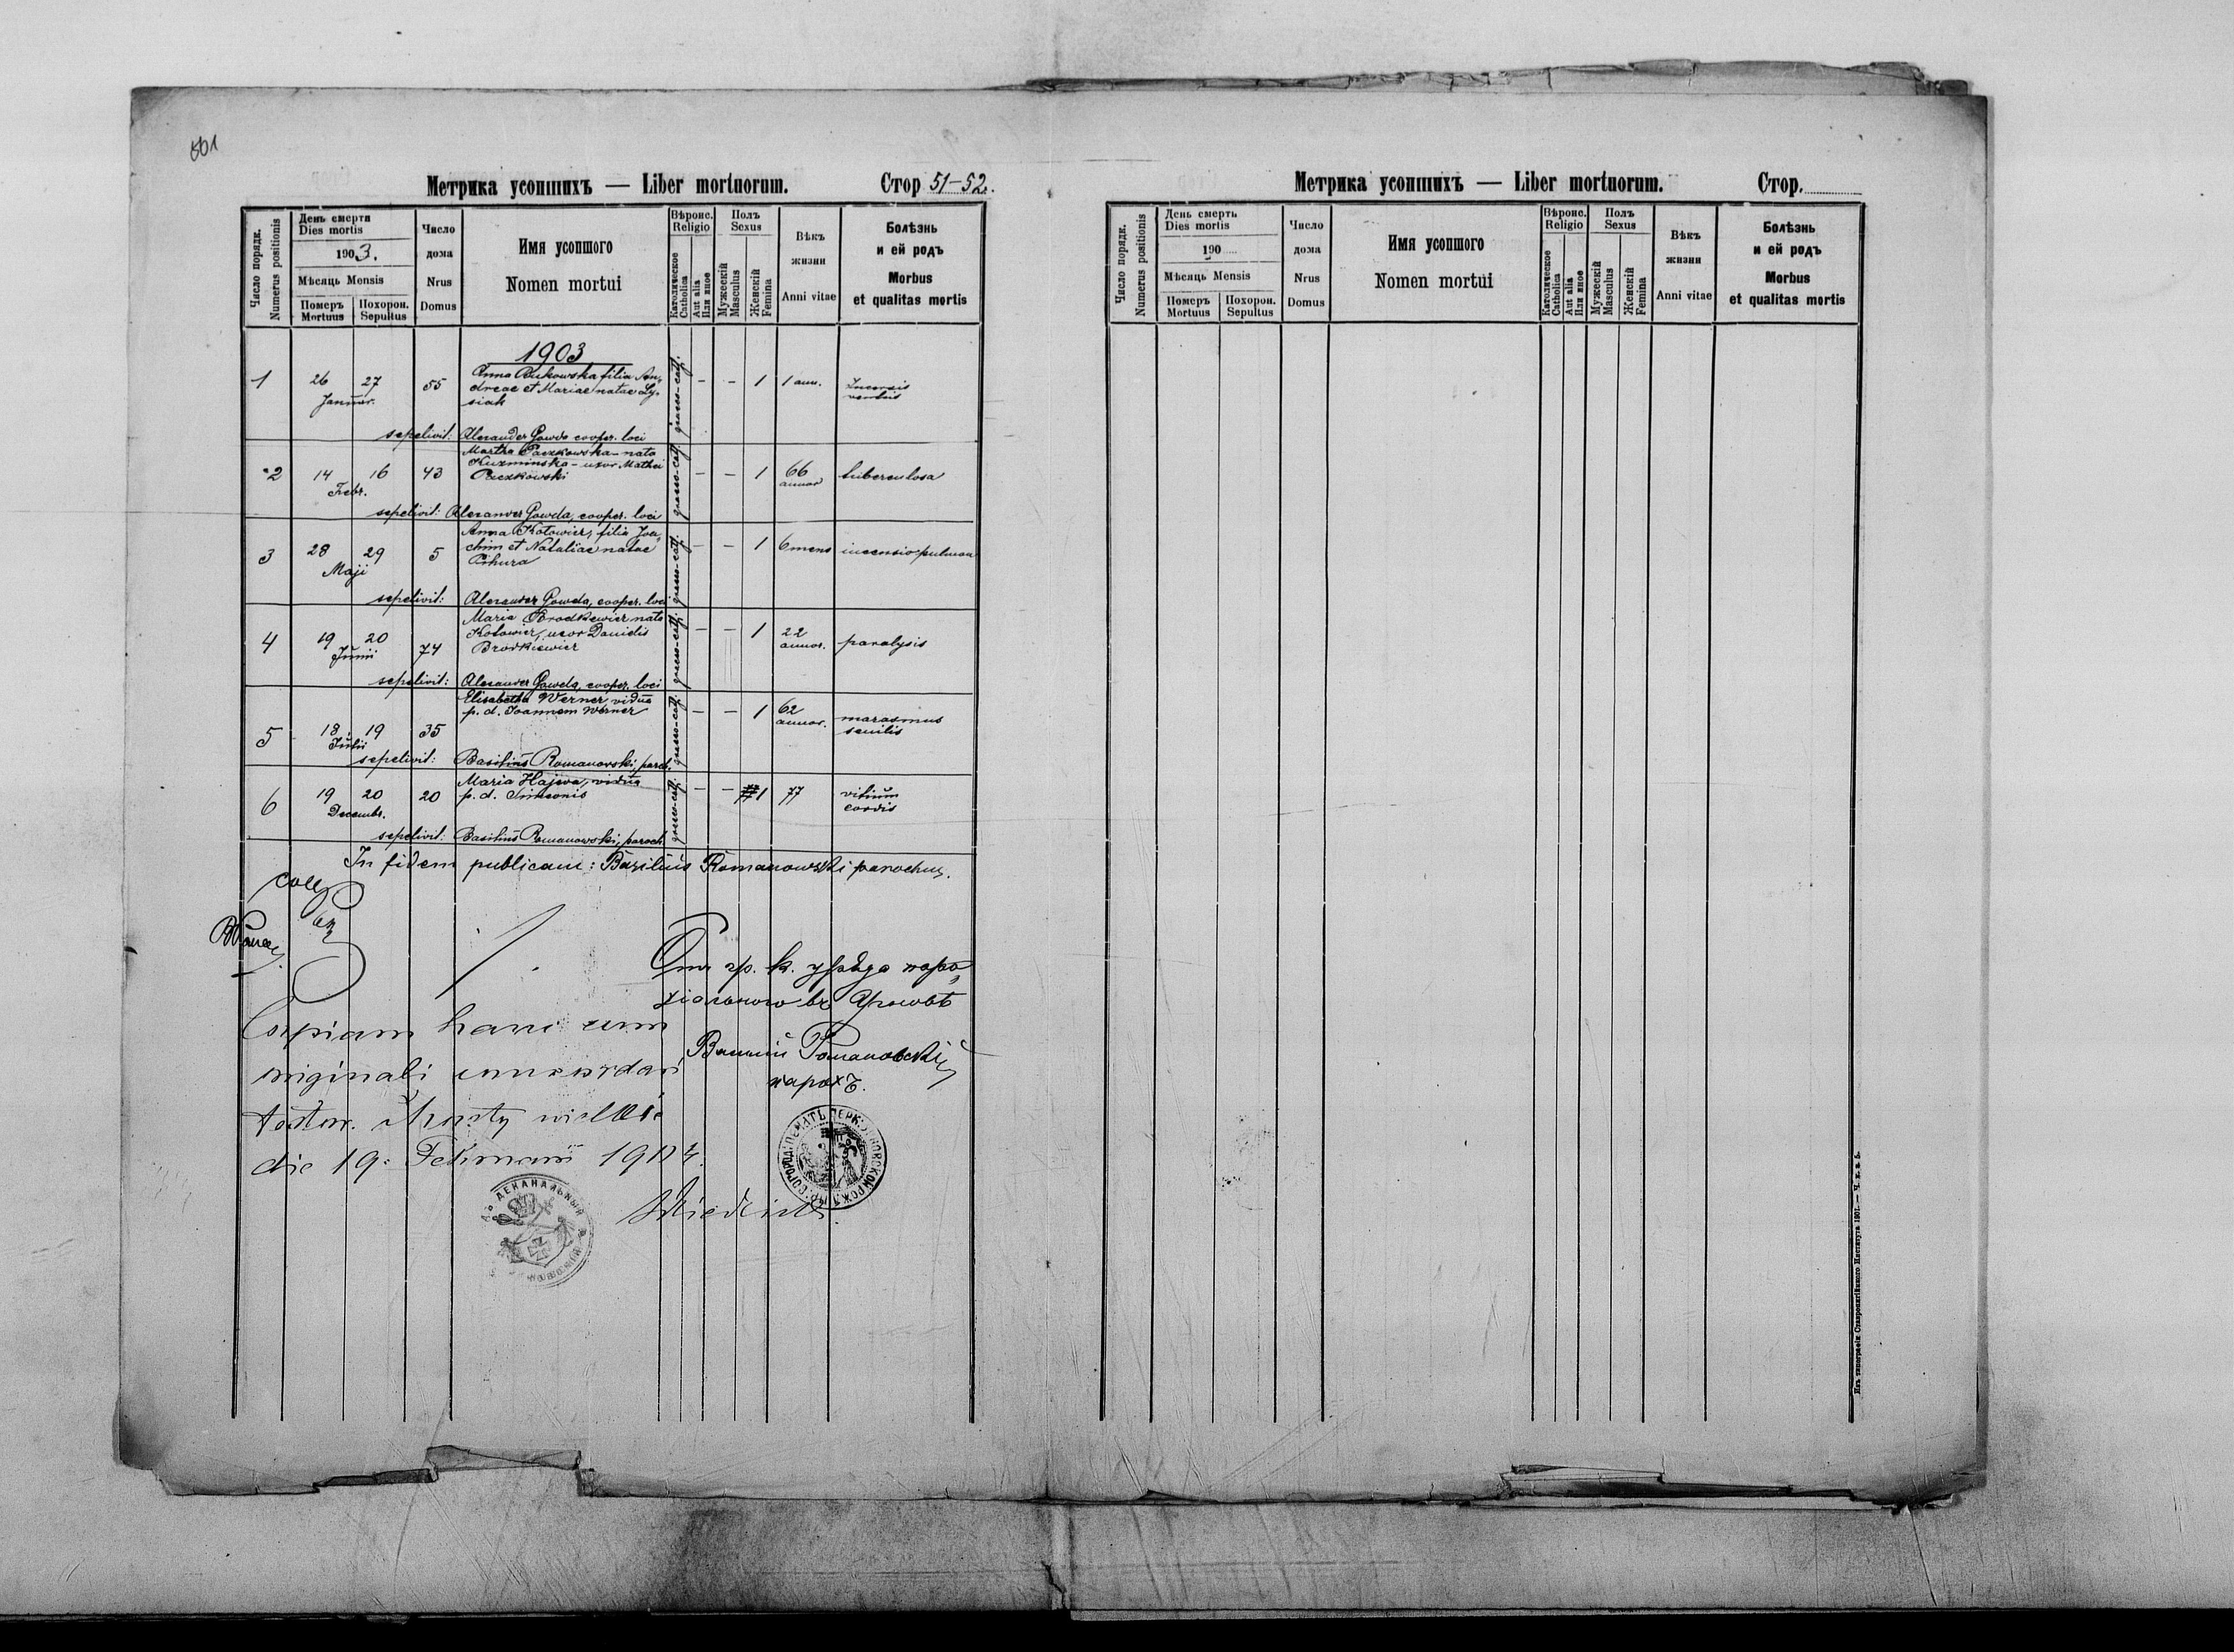 801
Метрика усопшихъ — Liber mortuorum. Стор 51-52.
Число порядк.
Numerus positionis
День смерти
Dies mortis
1903.
Мѣсяць Mensis
Померъ
Mortuus
Похорон.
Sepultus
Число
дома
Nrus
Domus
Имя усопшого
Nomen mortui
Вѣроис.
Religio
Католическое
Catholica
Aut alia
Или иное
Полъ
Sexus
Мужескій
Masculus
Женскій
Femina
Вѣкъ
жизни
Anni vitae
Болѣзнь
и ей родъ
Morbus
et qualitas mortis
1903
1 26 27 Januar. 55 Anna Bukowska filia An-
dreae et Mariae natae Ly-
siak graeco-cath. - - 1 1 ann.
sepelivit: Alexander Gowda cooper. loci
2 14 16 Febr. 43 Martha Paczkowska - nata
Kuzminska - uxor Mathei
Paczkowski graeco-cath. - - 1 66 annor tuberculosa
sepelivit: Alexander Gowda, cooper. loci
3 28 29 Maji 5 Anna Kotowicz, filia Joa-
chim et Nataliae natae
Pihura graeco-cath. - - 1 6 mens incensio pulmon
sepelivit: Alexander Gowda, cooper. loci
4 19 20 Junii 74 Maria Brodkiewicz nata
Kotowicz, uxor Danielis
Brodkiewicz graeco-cath. - - 1 22 annor. paralysis
sepelivit: Alexander Gowda, cooper. loci
5 18 19 Julii 35 Elisabetha Werner vidua
p. d. Joannem Werner graeco-cath. - - 1 62 annor. marasmus
senilis
sepelivit: Basilius Romanowski, paroch.
6 19 20 Decembr. 20 Maria Hajwa, vidua
p. d. Simeonis graeco-cath. - - 1 77 vitium
cordis
sepelivit: Basilius Romanowski, paroch
In fidem publicam: Basilius Romanowski parochus.
Отъ гр. к. уряда паро-
хіального въ
Василій Романовскій
парохъ.
Copiam hanc cum
originali concordari
testor.
die 19. Februarii 1904.
ДЕКАНАЛЬНЫЙ
Метрика усопшихъ — Liber mortuorum. Стор.
Число порядк.
Numerus positionis
День смерть
Dies mortis
190
Мѣсяць Mensis
Померъ
Mortuus
Похорон.
Sepultus
Число
дома
Nrus
Domus
Имя усопшого
Nomen mortui
Вѣроис.
Religio
Католическое
Catholica
Aut alia
Или иное
Полъ
Sexus
Мужескій
Masculus
Женскій
Femina
Вѣкъ
жизни
Anni vitae
Болѣзнь
и ей родъ
Morbus
et qualitas mortis
Изъ типографіи Ставропигійского Института 1901. — Ч. к. в. 5.